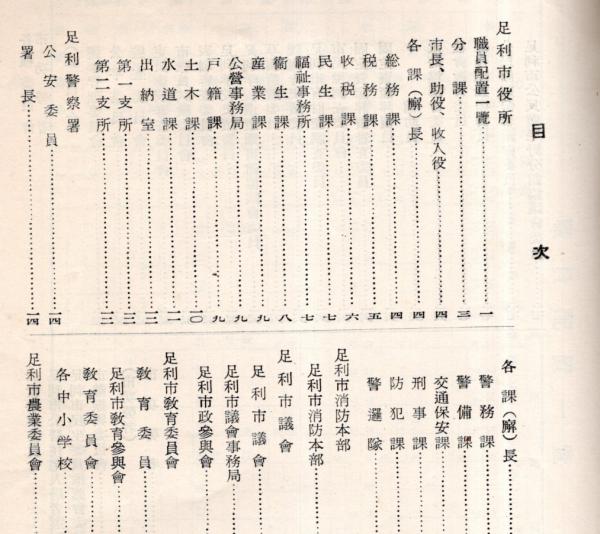 目次
足利市役所
職員配置一覽……一
分課……三
市長、助役、收入役……四
各課(廨)長……四
総務課……四
税務課……五
收税課……六
民生課……七
福祉事務所……七
衞生課……八
産業課……九
公營事務局……九
戸籍課……九
土木課……一〇
水道課……一一
出納室……一二
第一支所……一三
第二支所……一三
足利警察署
公安委員……一四
署長……一四
各課(廨)長
警務課
警備課
交通保安課
刑事課
防犯課
警邏隊
足利市消防本部
足利市消防本部
足利市議會
足利市議會
足利市議會事務局
足利市政參與會
足利市教育委員會
教育委員
足利市教育參與會
教育委員會
各中小学校
足利市農業委員會